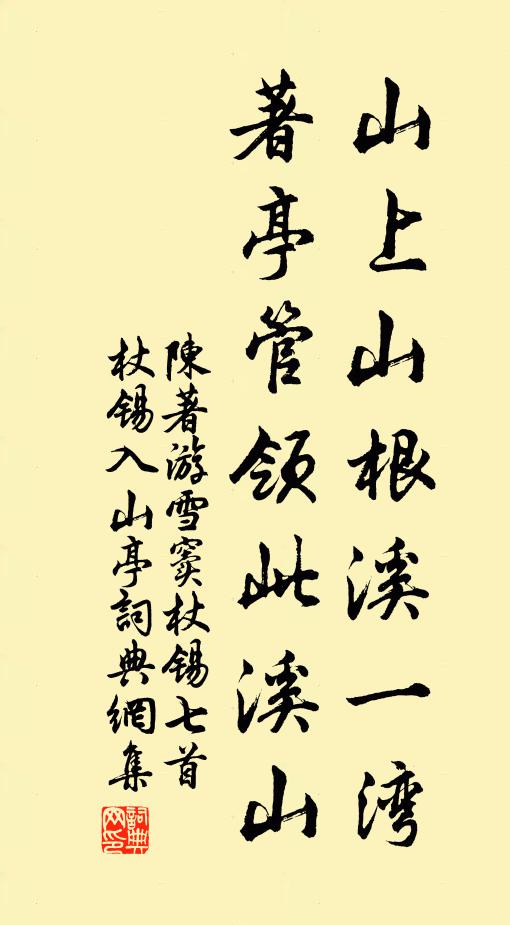 山上山根溪一湾
著亭管领此溪山
陳著游雪窦杖锡七首
杖锡入山亭詞典網集
詞典網印